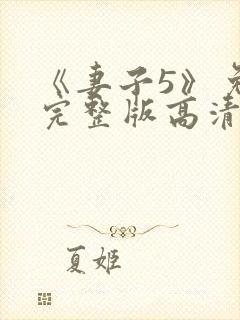 《妻子5》免
完整版高清
夏姬